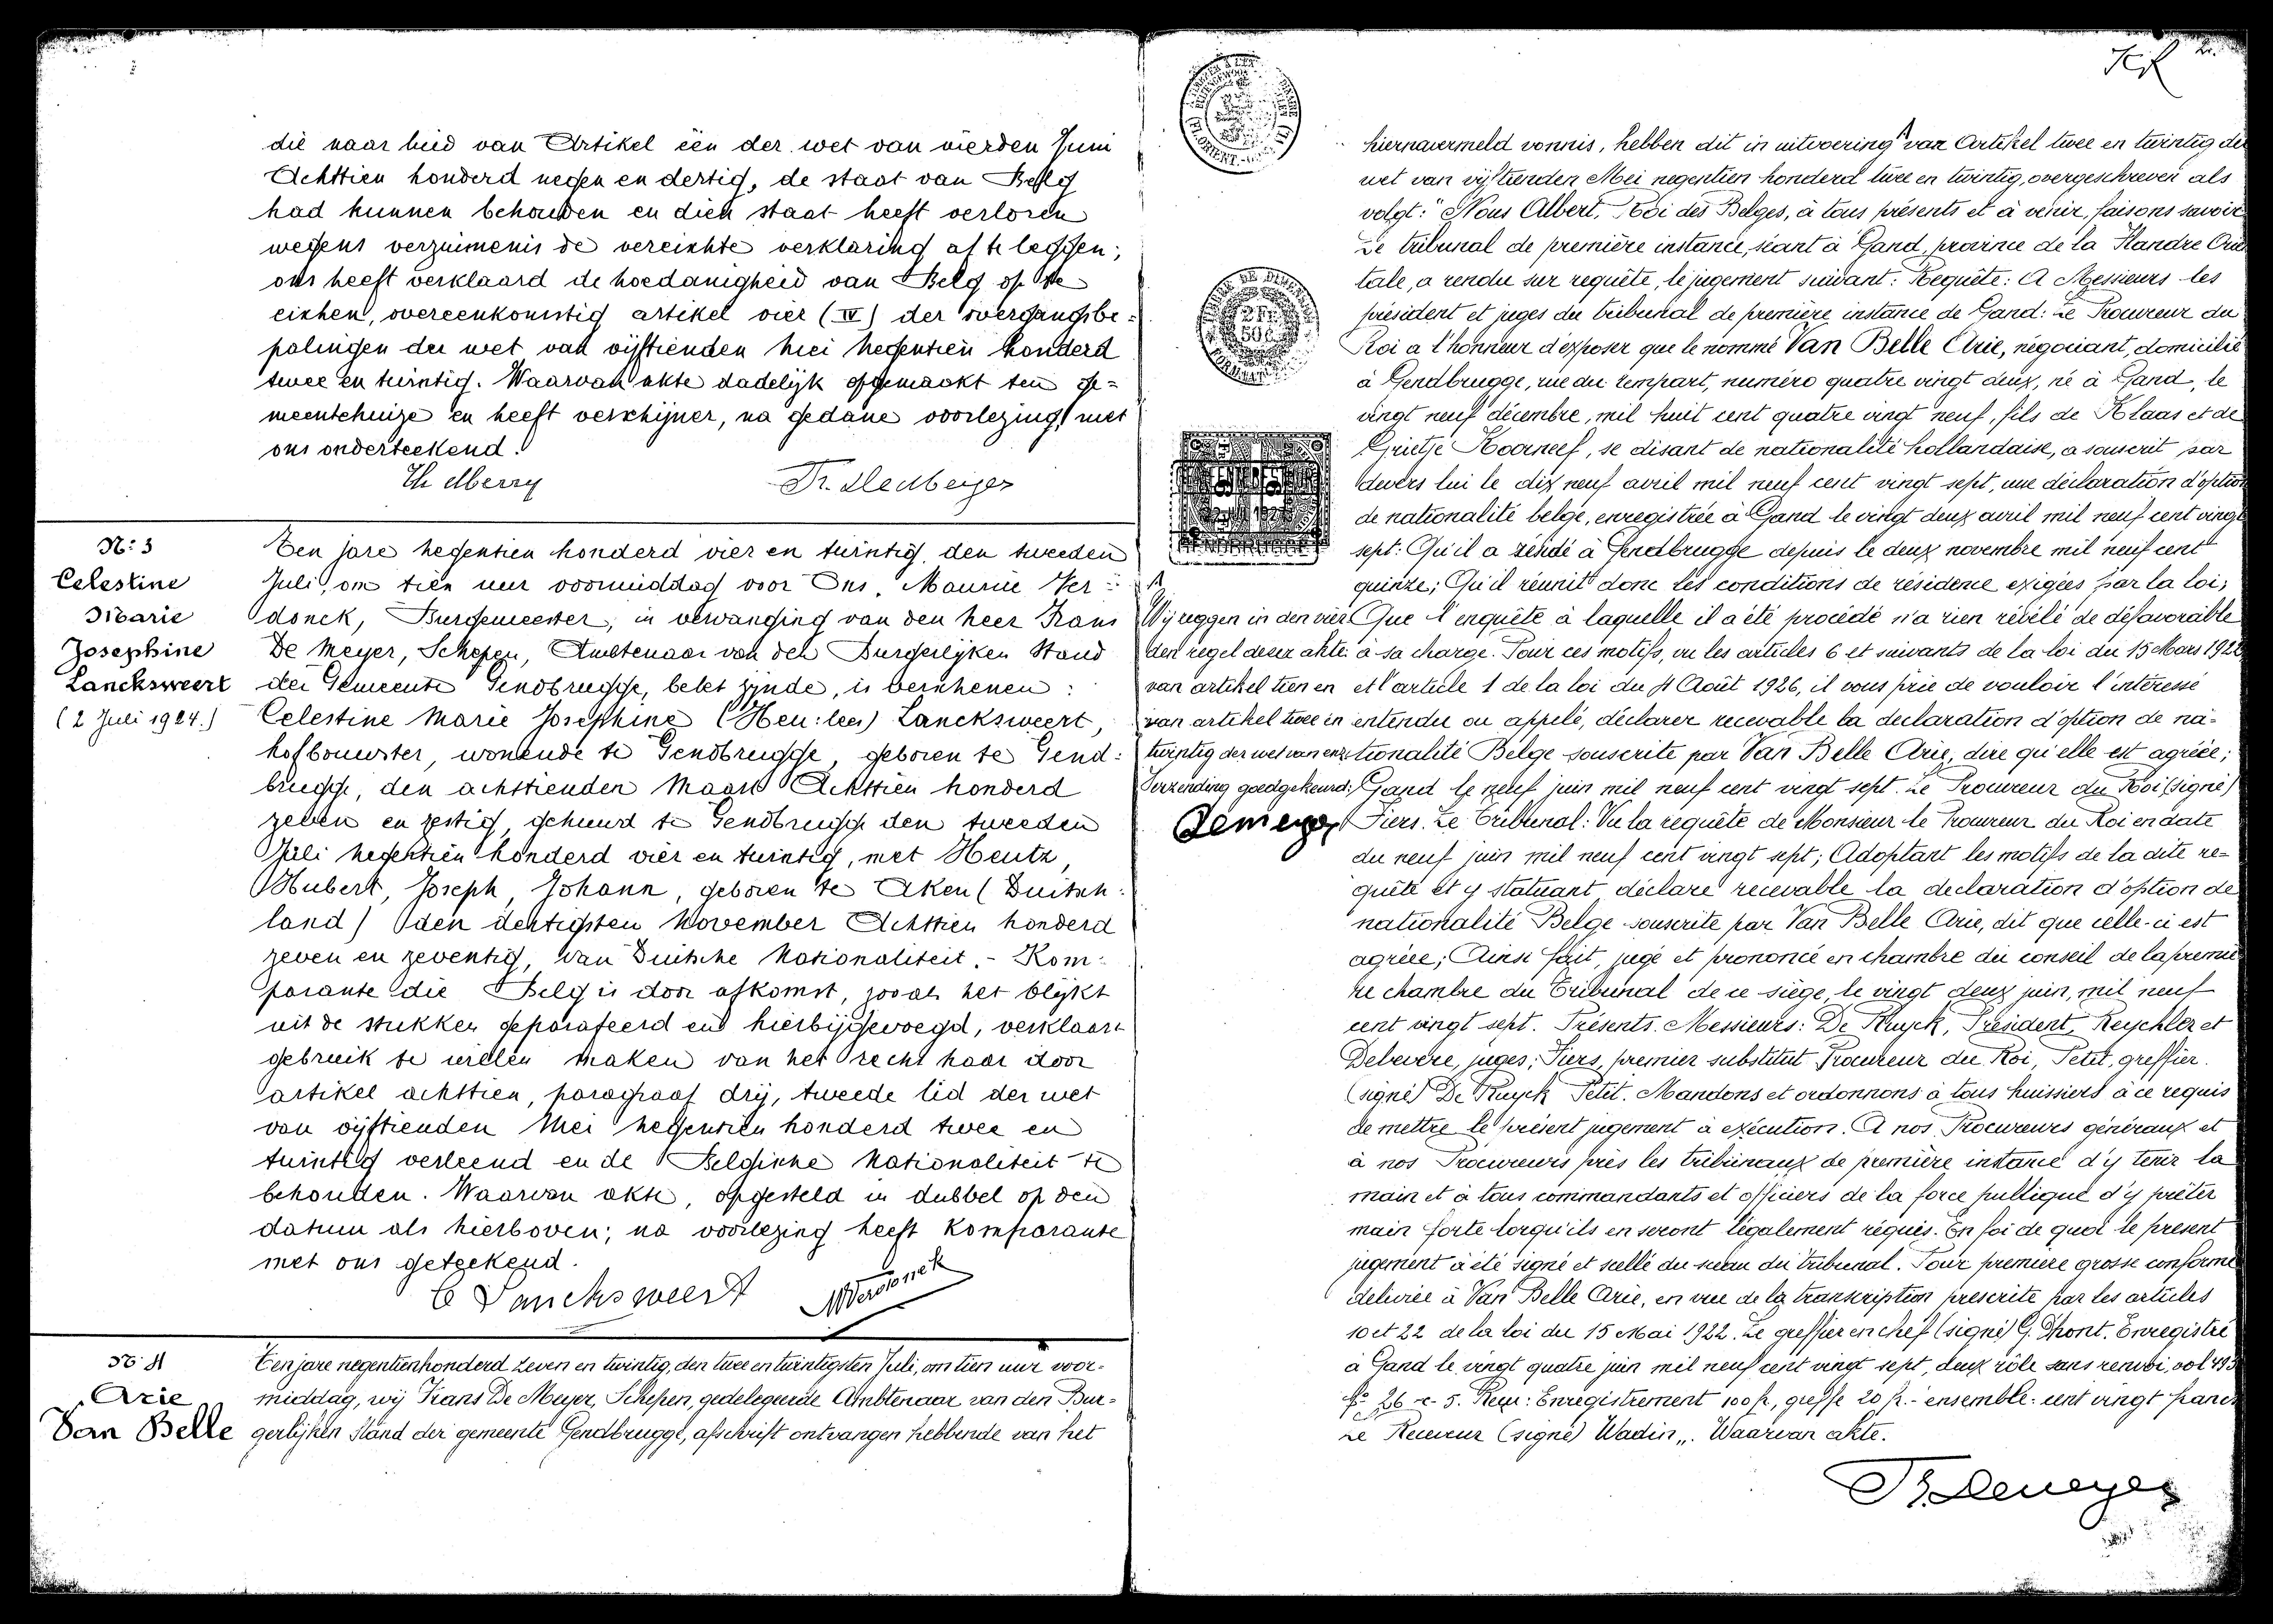 die naar luid van Artikel één der wet van vierden Juni
Achttien honderd negen en dertig, de staat van Belg
had kunnen behouden en dien staat heeft verloren
wegens verzuimenis de vereischte verklaring af te leggen;
ons heeft verklaard de hoedanigheid van Belg op te
eischen, overeenkomstig artikel vier (IV) der overgangsbe-
palingen der wet van vijftienden Mei Negentien honderd
twee en twintig. Waarvan akte dadelijk opgemaakt ten ge=
meentehuize en heeft verschijner, na gedane voorlezing met
ons onderteekend.
Fr. Demeyer
Nr 3
Celestine
Marie
Josephine
Lancksweert
(2 Juli 1924.)
Ten jare negentien honderd vier en twintig, den tweeden
Juli, om tien uur voormiddag voor Ons, Maurice Ver-
donck, Burgemeester, in vervanging van den heer Frans
De Meyer, Schepen, Ambtenaar van den Burgerlijken Stand
der Gemeente Gendbrugge, belet zijnde, is verschenen:
Celestine Marie Josephine Lancksweert,
hofbouwster, wonende te Gendbrugge, geboren te Gend-
brugge, den achttienden Maart Achttien honderd
zeven en zestig, gehuwd te Gendbrugge den tweeden
Juli negentien honderd vier en twintig, met Heutz,
Hubert, Joseph, Johann, geboren te Aken (Duitsch-
land) den dertigsten November Achttien honderd
zeven en zeventig, van Duitsche Nationaliteit. - Kom-
parante die Belg is door afkomst, zooals het blijkt
uit de stukken geparafeerd en hierbijgevoegd, verklaart
gebruik te willen maken van het recht haar door
artikel achttien, paragraaf drij, tweede lid der wet
van vijftienden Mei negentien honderd twee en
twintig verleend en de Belgische Nationaliteit te
behouden. Waarvan akte, opgesteld in dubbel op den
datum als hierboven; na voorlezing heeft Komparante
met ons geteekend.
C Lancksweert MVerdonck
Nr 4
Arie
Van Belle
Ten jare negentienhonderd zeven en twintig, den twee en twintigsten Juli, om tien uur voor-
middag, wij Frans De Meyer, Schepen, gedelegeerde Ambtenaar van den Bur-
gerlijken Stand der gemeente Gendbrugge, afschrift ontvangen hebbende van het
hiernavermeld vonnis, hebben dit in uitvoering van Artikel twee en twintig der
wet van vijftienden Mei negentien honderd twee en twintig, overgeschreven als
volgt: "Nous Albert, Roi des Belges, à tous présents et à venir, faisons savoir
Le tribunal de première instance, séant à Gand, province de la Flandre Orien
tale, a rendu sur requête, le jugement suivant: Requête: A Messieurs les
président et juges du tribunal de première instance de Gand: Le Procureur du
Roi a l'honneur d'exposer que le nommé Van Belle Arie, négociant, domicilié
à Gendbrugge, rue du rempart, numéro quatre vingt deux, né à Gand, le
vingt neuf décembre, mil huit cent quatre vingt neuf, fils de Klaas et de
Grietje Koorneef, se disant de nationalité hollandaise, a souscrit par
devers lui le dix neuf avril mil neuf cent vingt sept, une déclaration d'option
de nationalité belge, enregistrée à Gand le vingt deux avril mil neuf cent vingt
sept: Qu'il a résidé à Gendbrugge depuis le deux novembre mil neuf cent
quinze; Qu'il réunit donc les conditions de résidence exigées par la loi;
Que l'enquête à laquelle il a été procédé n'a rien révélé de défavorable
à sa charge. Pour ces motifs, vu les articles 6 et suivants de la loi du 15 Mars 1922
et l'article 1 de la loi du 4 Août 1926, il vous prie de vouloir l'intéressé
entendu ou appelé, déclarer recevable la declaration d'option de na-
tionalité Belge souscrite par Van Belle Arie, dire qu'elle est agréée;
Gand le neuf juin mil neuf cent vingt sept. Le Procureur du Roi (signé)
Fiers. Le Tribunal: Vu la requête de Monsieur le Procureur du Roi en date
du neuf juin mil neuf cent vingt sept; Adoptant les motifs de la dite re-
quête et y statuant déclare recevable la declaration d'option de
nationalité Belge souscrite par Van Belle Arie, dit que celle-ci est
agréée; Ainsi fait, jugé et prononcé en chambre du conseil de la premiè
re chambre du Tribunal de ce siège, le vingt deux juin, mil neuf
cent vingt sept. Présents. Messieurs: De Kuyck, Président, Reychler et
Delevere, juges; Fiers, premier substitut Procureur du Roi, Petit, greffier.
(signé) De Kuyck Petit. Mandons et ordonnons à tous huissiers à ce requis
de mettre le présent jugement à exécution. A nos Procureurs généraux et
à nos Procureurs près les tribunaux de première instance d'y tenir la
main et à tous commandants et officiers de la force publique d'y prêter
main forte lorqu'ils en seront légalement réquis. En foi de quoi le present
jugement a été signé et scellé du sceau du tribunal. Pour première grosse conforme
delivrée à Van Belle Arie, en vue de la transcription prescrite par les articles
10 et 22 de la loi du 15 Mai 1922. Le greffier en chef (signé) G. Dhont. Enregistré
à Gand le vingt quatre juin mil neuf cent vingt sept, deux rôle sans renvoi, vol 493
fo 26 c. 5. Reçu: Enregistrement 100 fr, greffe 20 fr. - ensemble: cent vingt francs
Le Receveur (signé) Wadin„. Waarvan akte.
Wij zeggen in den vier
den regel dezer akte:
van artikel tien en
van artikel twee en
twintig der wet van enz
Verzending goedgekeurd:
Demeyer
Fr. Demeyer
2 Fr
50 c